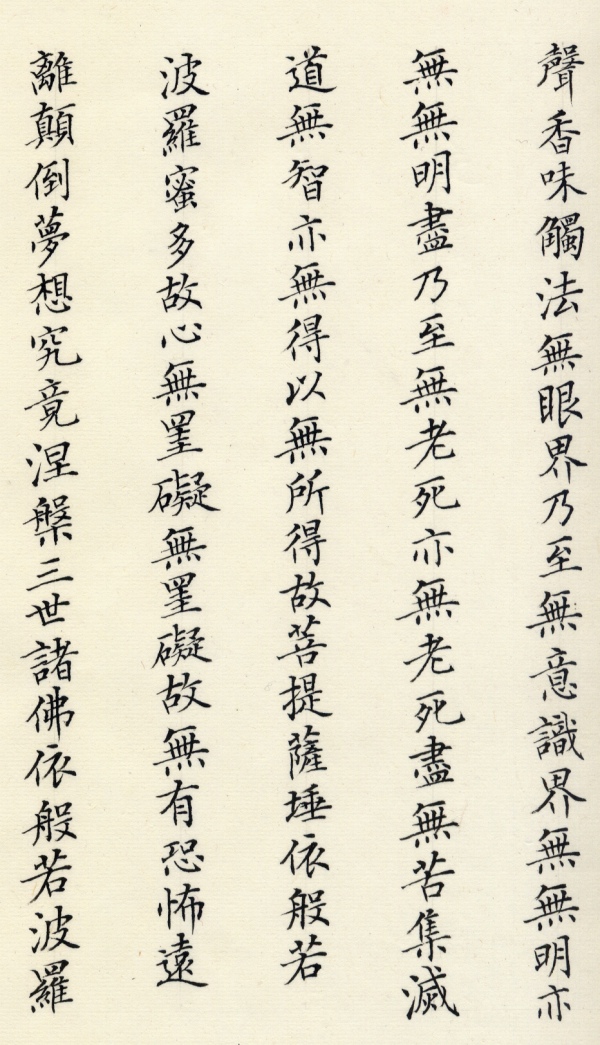 聲香味觸法無眼界乃至無意識界無無明亦
無無明盡乃至無老死亦無老死盡無苦集滅
道無智亦無得以無所得故菩提薩埵依般若
波羅蜜多故心無罣礙無罣礙故無有恐怖遠
離顛倒夢想究竟涅槃三世諸佛依般若波羅